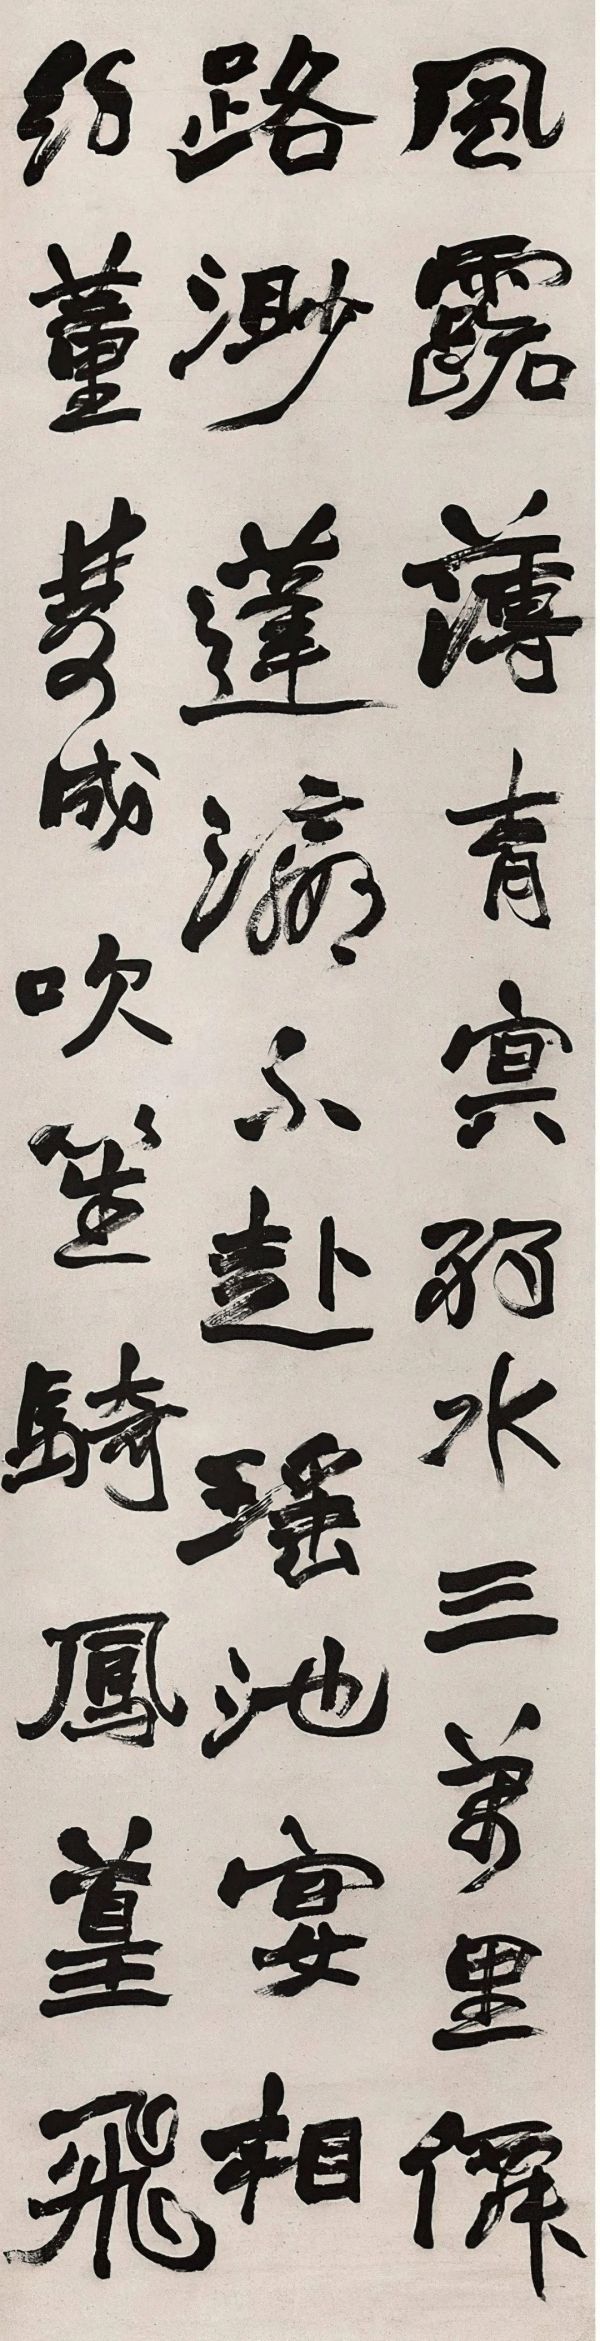 風露薄青冥弱水三萬里僊
路渺蓬瀛不赴瑤池宴相
約董雙成吹笙騎鳳葟飛